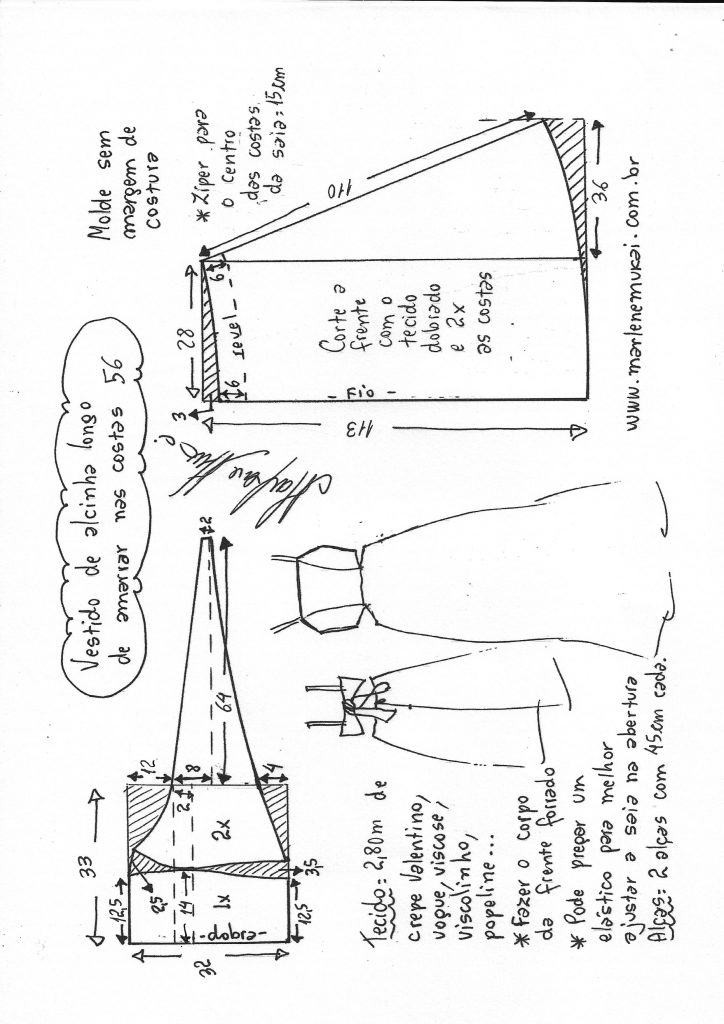 Vestido de alcinha longo
de amarrar nas costas 56
Molde sem
margem de
costura
*Zíper para
o centro
das costas
da saia=15cm
33
12
8
2
4
64
2
2x
2,5
3,5
12,5
14
1x
dobra
12,5
32
3
28
6
revel
6
110
Corte a
frente
com o
tecido
dobrado
e 2x
as costas
Fio
113
36
www.marlenemukai.com.br
Tecido=2,80m de
crepe Valentino,
vogue, viscose,
viscolinho,
popeline...
*Fazer o corpo
da frente forrado
*Pode pregar um
elástico para melhor
ajustar a saia na abertura
Alças=2 alças com 45cm cada.